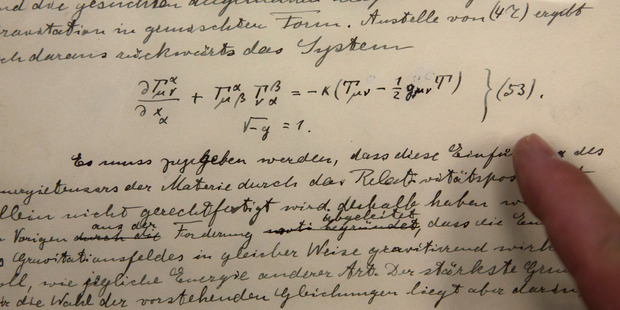 die gesuchten allgemeinen
Gravitation in gemischten Form. Anstelle von (47) ergibt
ch daraus rückwärts das System
∂Γ^α_μν / ∂x_α + Γ^α_μβ Γ^β_να = -κ(T_μν - 1/2 g_μν T) } (53).
√-g = 1.
Es muss zugegeben werden, dass diese Einfü des
nergietensors der Materie durch das Relativitätspos t
llein nicht gerechtfertigt wird; deshalb haben w
Vorigen durch die aus der Forderung abgeleitet, dass die En
s Gravitationsfeldes in gleicher Weise gravitierend wirk
oll, wie jegliche Energie anderer Art. Der stärkste Gru
die Wahl der vorstehenden Gleichungen liegt aber darin,